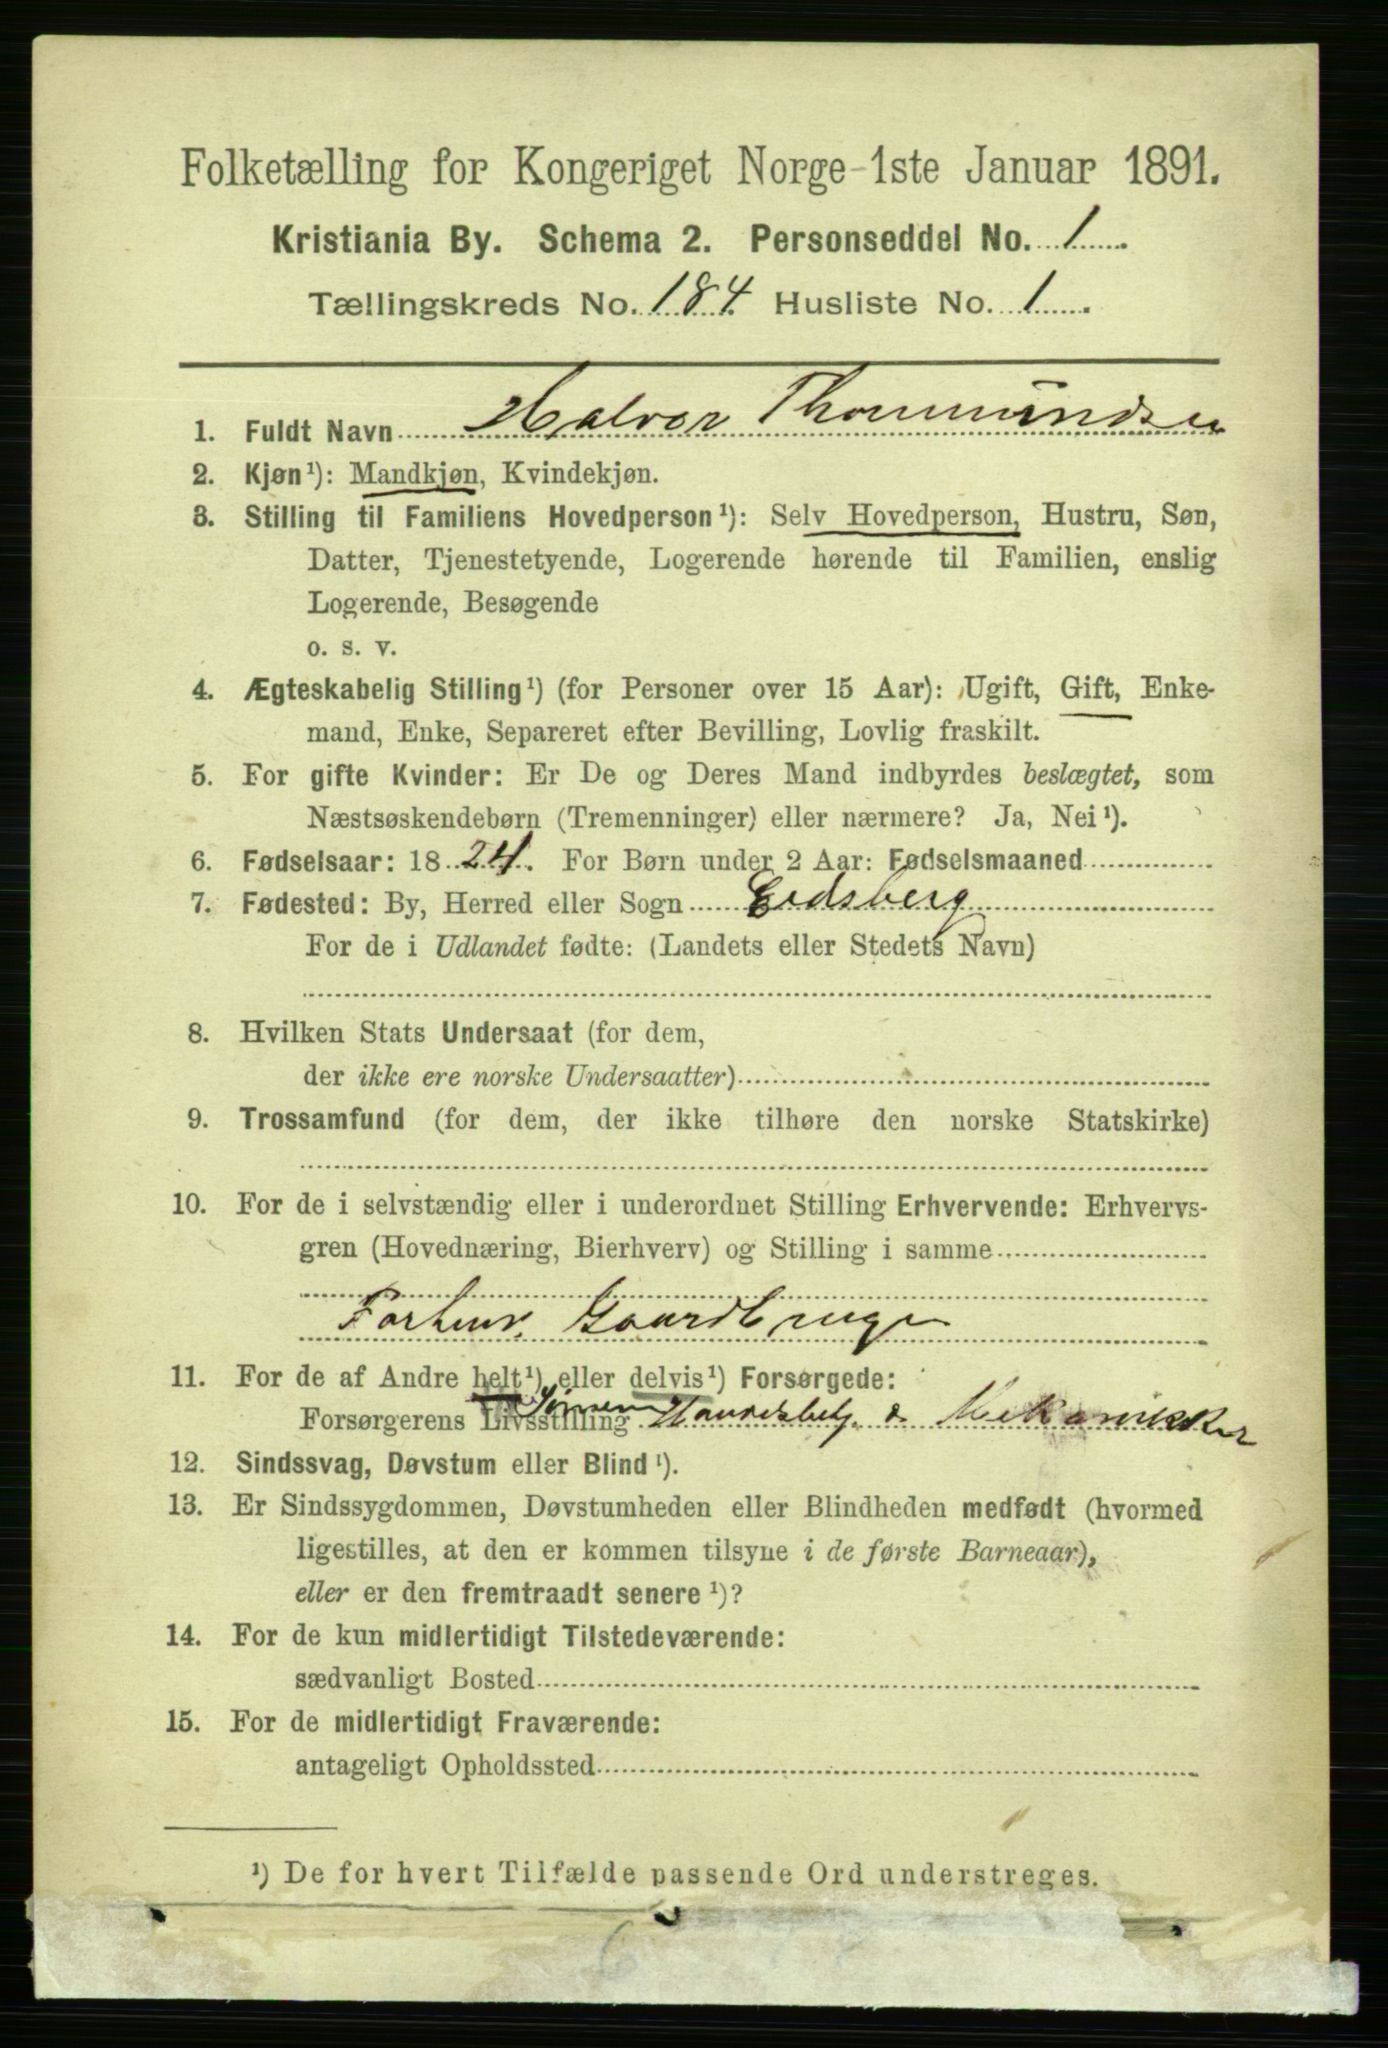 Folketælling for Kongeriget Norge 1ste Januar 1891.
Kristiania By. Schema 2. Personseddel No. 1.
Tællingskreds No. 184. Husliste No. 1.
1. Fuldt Navn Halvor Thommundsen
2. Kjøn¹): Mandkjøn, Kvindekjøn.
3. Stilling til Familiens Hovedperson¹): Selv Hovedperson, Hustru, Søn,
Datter, Tjenestetyende, Logerende hørende til Familien, enslig
Logerende, Besøgende
o. s. v.
4. Ægteskabelig Stilling¹) (for Personer over 15 Aar): Ugift, Gift, Enke-
mand, Enke, Separeret efter Bevilling, Lovlig fraskilt.
5. For gifte Kvinder: Er De og Deres Mand indbyrdes beslægtet, som
Næstsøskendebørn (Tremenninger) eller nærmere? Ja, Nei¹).
6. Fødselsaar: 1824. For Børn under 2 Aar: Fødselsmaaned
7. Fødested: By, Herred eller Sogn Eidsberg
For de i Udlandet fødte: (Landets eller Stedets Navn)
8. Hvilken Stats Undersaat (for dem,
der ikke ere norske Undersaatter)
9. Trossamfund (for dem, der ikke tilhøre den norske Statskirke)
10. For de i selvstændig eller i underordnet Stilling Erhvervende: Erhvervs-
gren (Hovednæring, Bierhverv) og Stilling i samme
Forhenv. Gaardbruger
11. For de af Andre helt¹) eller delvis¹) Forsørgede:
Sønnen
Forsørgerens Livsstilling Handelsbetj. & Mekanikker
12. Sindssvag, Døvstum eller Blind¹).
13. Er Sindssygdommen, Døvstumheden eller Blindheden medfødt (hvormed
ligestilles, at den er kommen tilsyne i de første Barneaar),
eller er den fremtraadt senere¹)?
14. For de kun midlertidigt Tilstedeværende:
sædvanligt Bosted
15. For de midlertidigt Fraværende:
antageligt Opholdssted
¹) De for hvert Tilfælde passende Ord understreges.